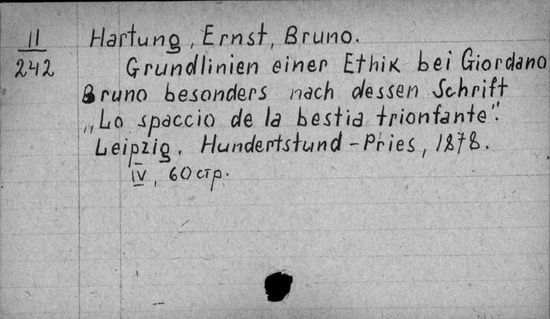 II
242
Hartung, Ernst, Bruno.
Grundlinien einer Ethik bei Giordano
Bruno besonders nach dessen Schrift
„Lo spaccio de la bestia trionfante".
Leipzig. Hundertstund-Pries, 1878.
IV, 60 стр.